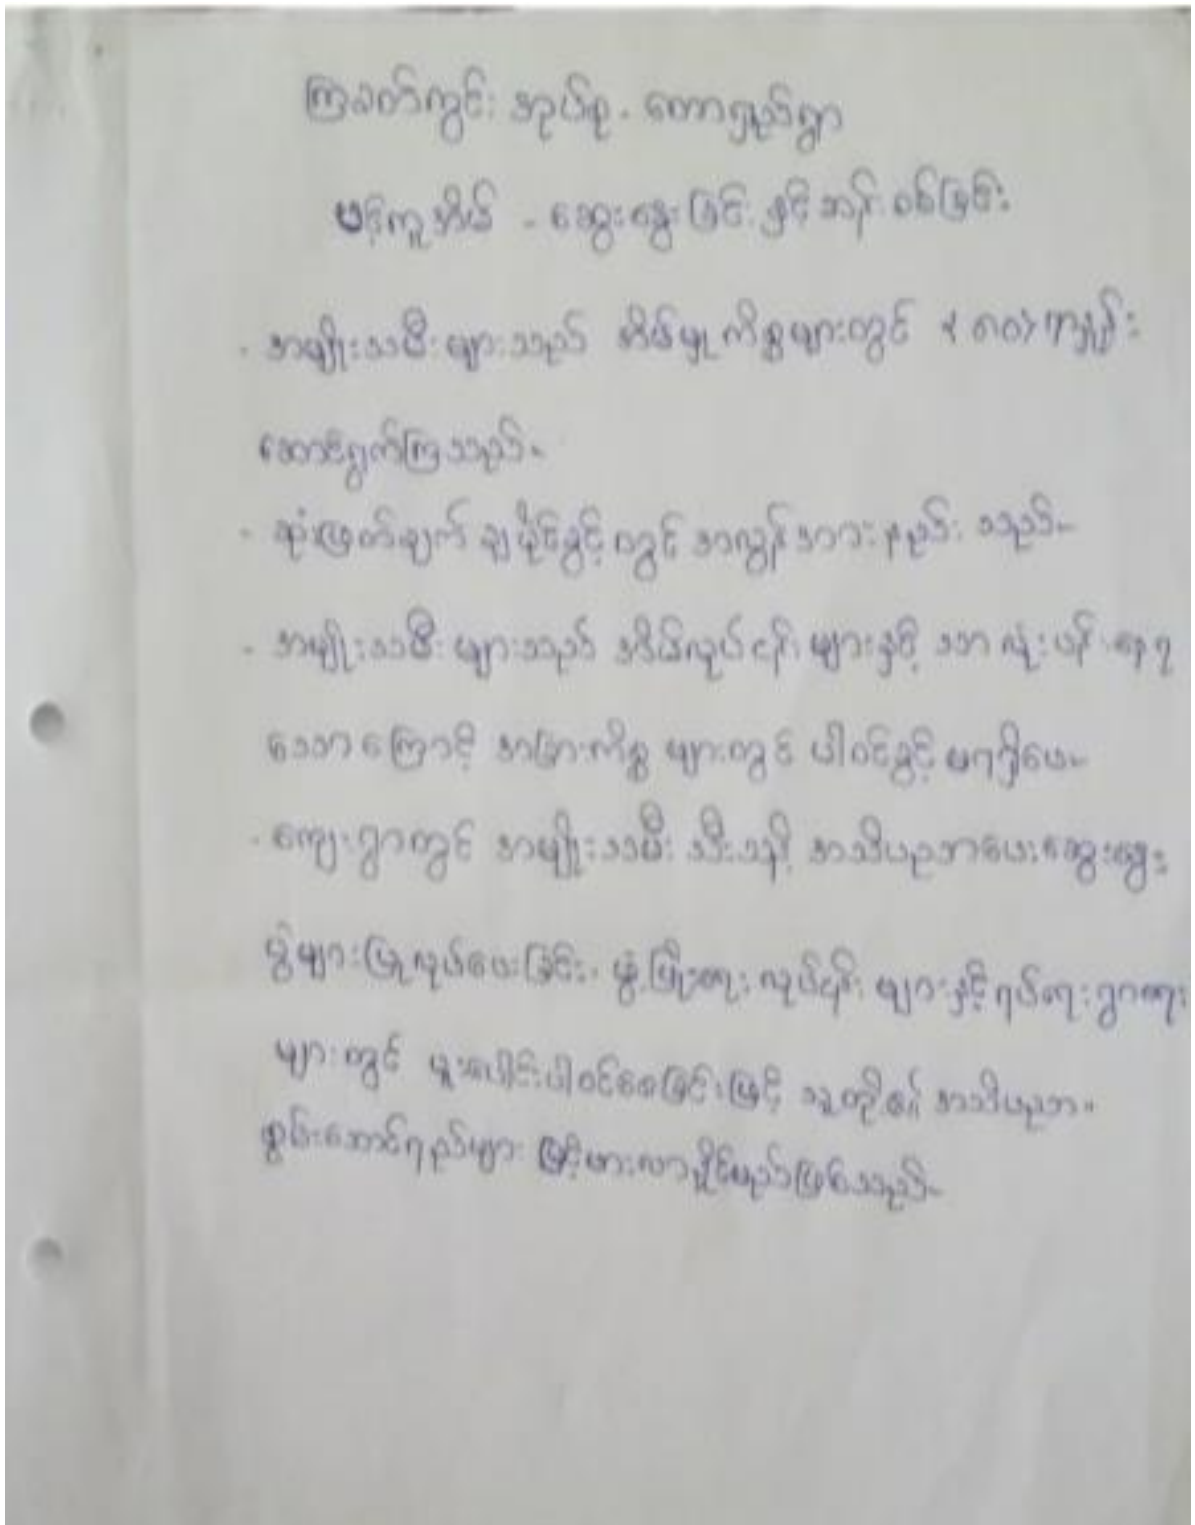 ကြခတ်ကွင်း အုပ်စု - တောရှည်ရွာ
ဆွေးနွေးခြင်း နှင့် ဆန်းစစ်ခြင်း
- အမျိုးသမီးများသည် အိမ်မှုကိစ္စများတွင် ရာနှုန်း
ဆောင်ရွက်ကြသည်။
- ဆုံးဖြတ်ချက် ချပိုင်ခွင့် တွင် အလွန်အားနည်း သည်။
- အမျိုးသမီးများသည် အိမ်လုပ်ငန်းများနှင့် သာ လုံးပန်းနေရ
သောကြောင့် အခြားကိစ္စ များတွင် ပါဝင်ခွင့် မရရှိပေ။
- ကျေးရွာတွင် အမျိုးသမီး သီးသန့် အသိပညာပေးဆွေးနွေး
ပွဲများပြုလုပ်ပေးခြင်း၊ ဖွံ့ဖြိုးရေးလုပ်ငန်း များနှင့်ရပ်ရေးရွာရေး
များတွင် ပူးပေါင်းပါဝင်စေခြင်းဖြင့် သူတို့၏ အသိပညာ၊
စွမ်းဆောင်ရည်များ မြင့်မားလာနိုင်မည်ဖြစ်သည်။